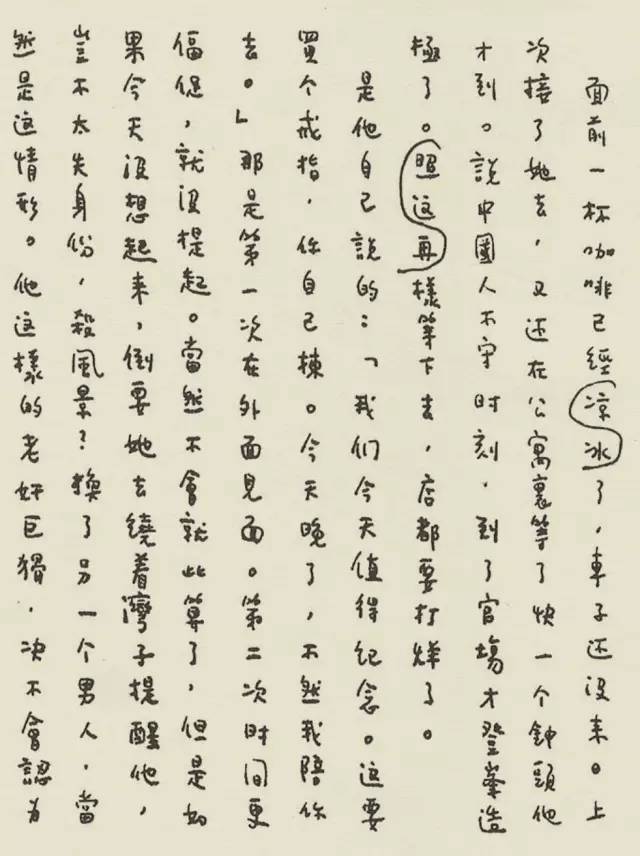 面前一杯咖啡已經凉冰了，車子还没来。上
次接了她去，又还在公寓裏等了快一个鐘頭他
才到。說中國人不守时刻，到了官場才登峯造
極了。照这再樣等下去，店都要打烊了。
是他自己說的：「我们今天值得纪念。这要
買个戒指，你自己揀。今天晚了，不然我陪你
去。」那是第一次在外面見面。第二次时间更
偪促，就没提起。當然不會就此算了，但是如
果今天没想起来，倒要她去繞着灣子提醒他，
豈不太失身份，殺風景？換了另一个男人，當
然是这情形。他这樣的老奸巨猾，决不會認为